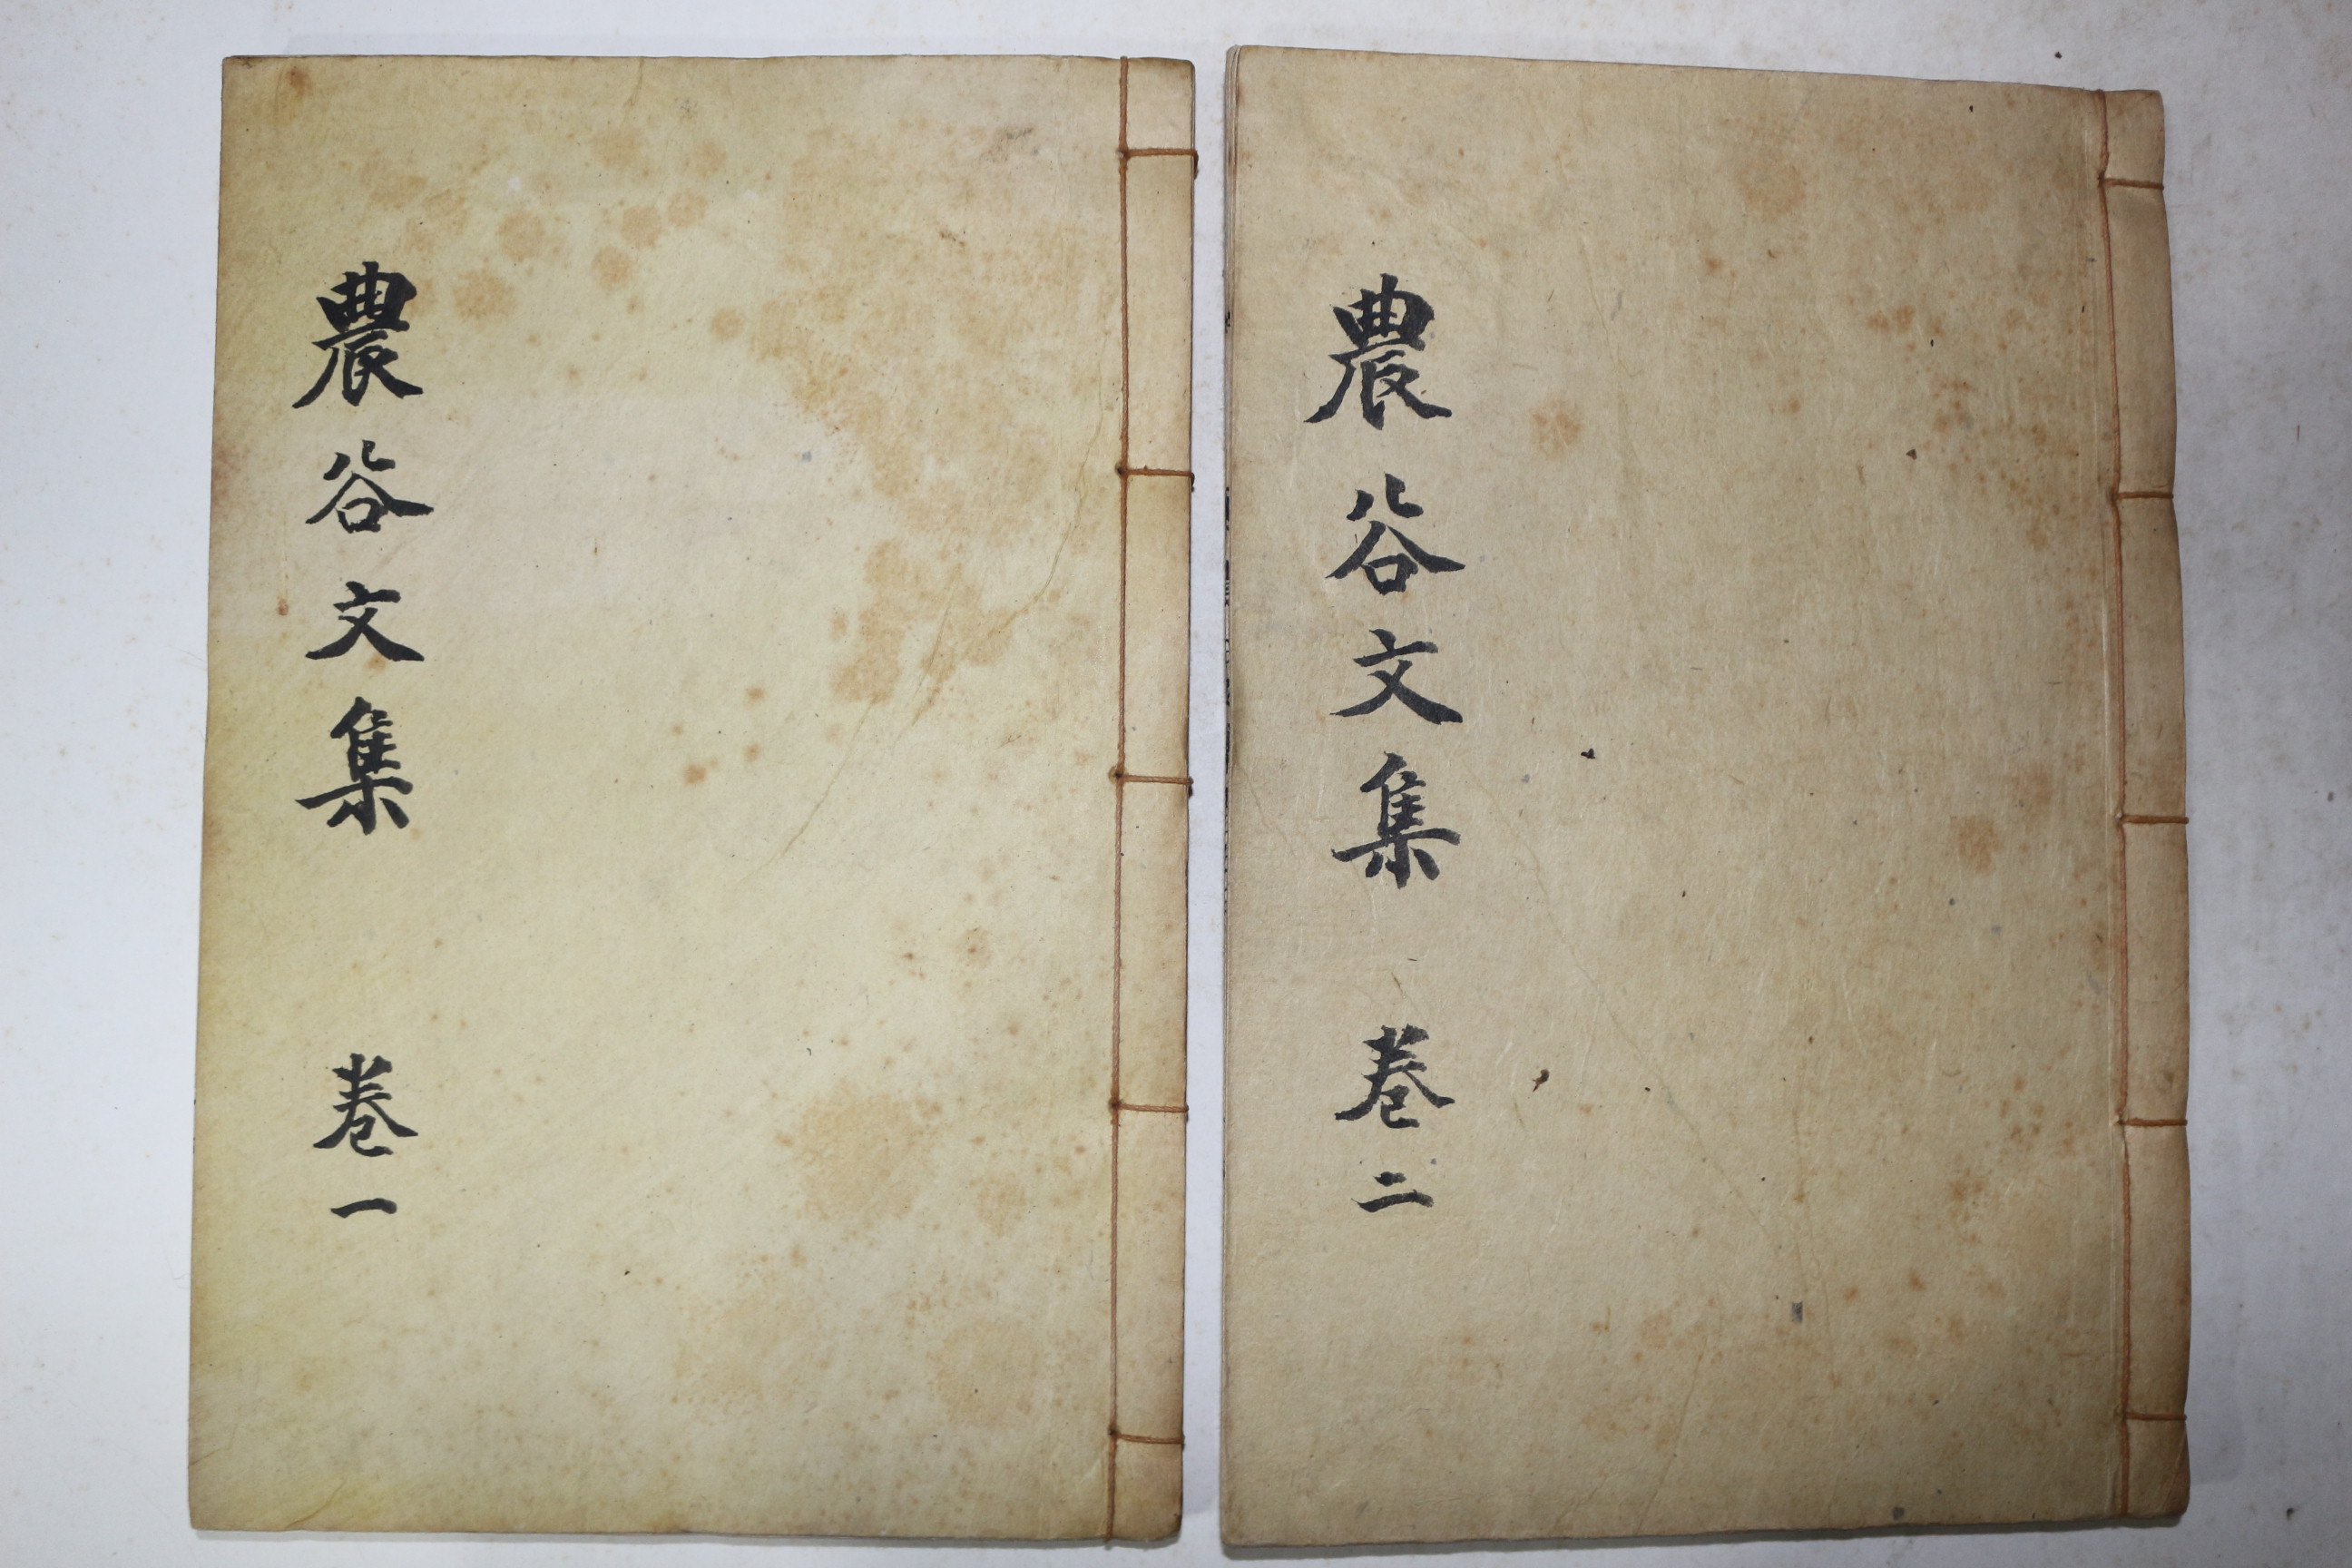 農谷文集 卷一
農谷文集 卷二